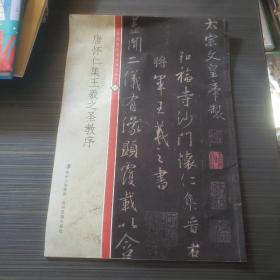 唐怀仁集王羲之圣教序
太宗文皇帝製
弘福寺沙门懷仁集晋右
将軍王羲之書
盖聞二儀有像顯覆載以含